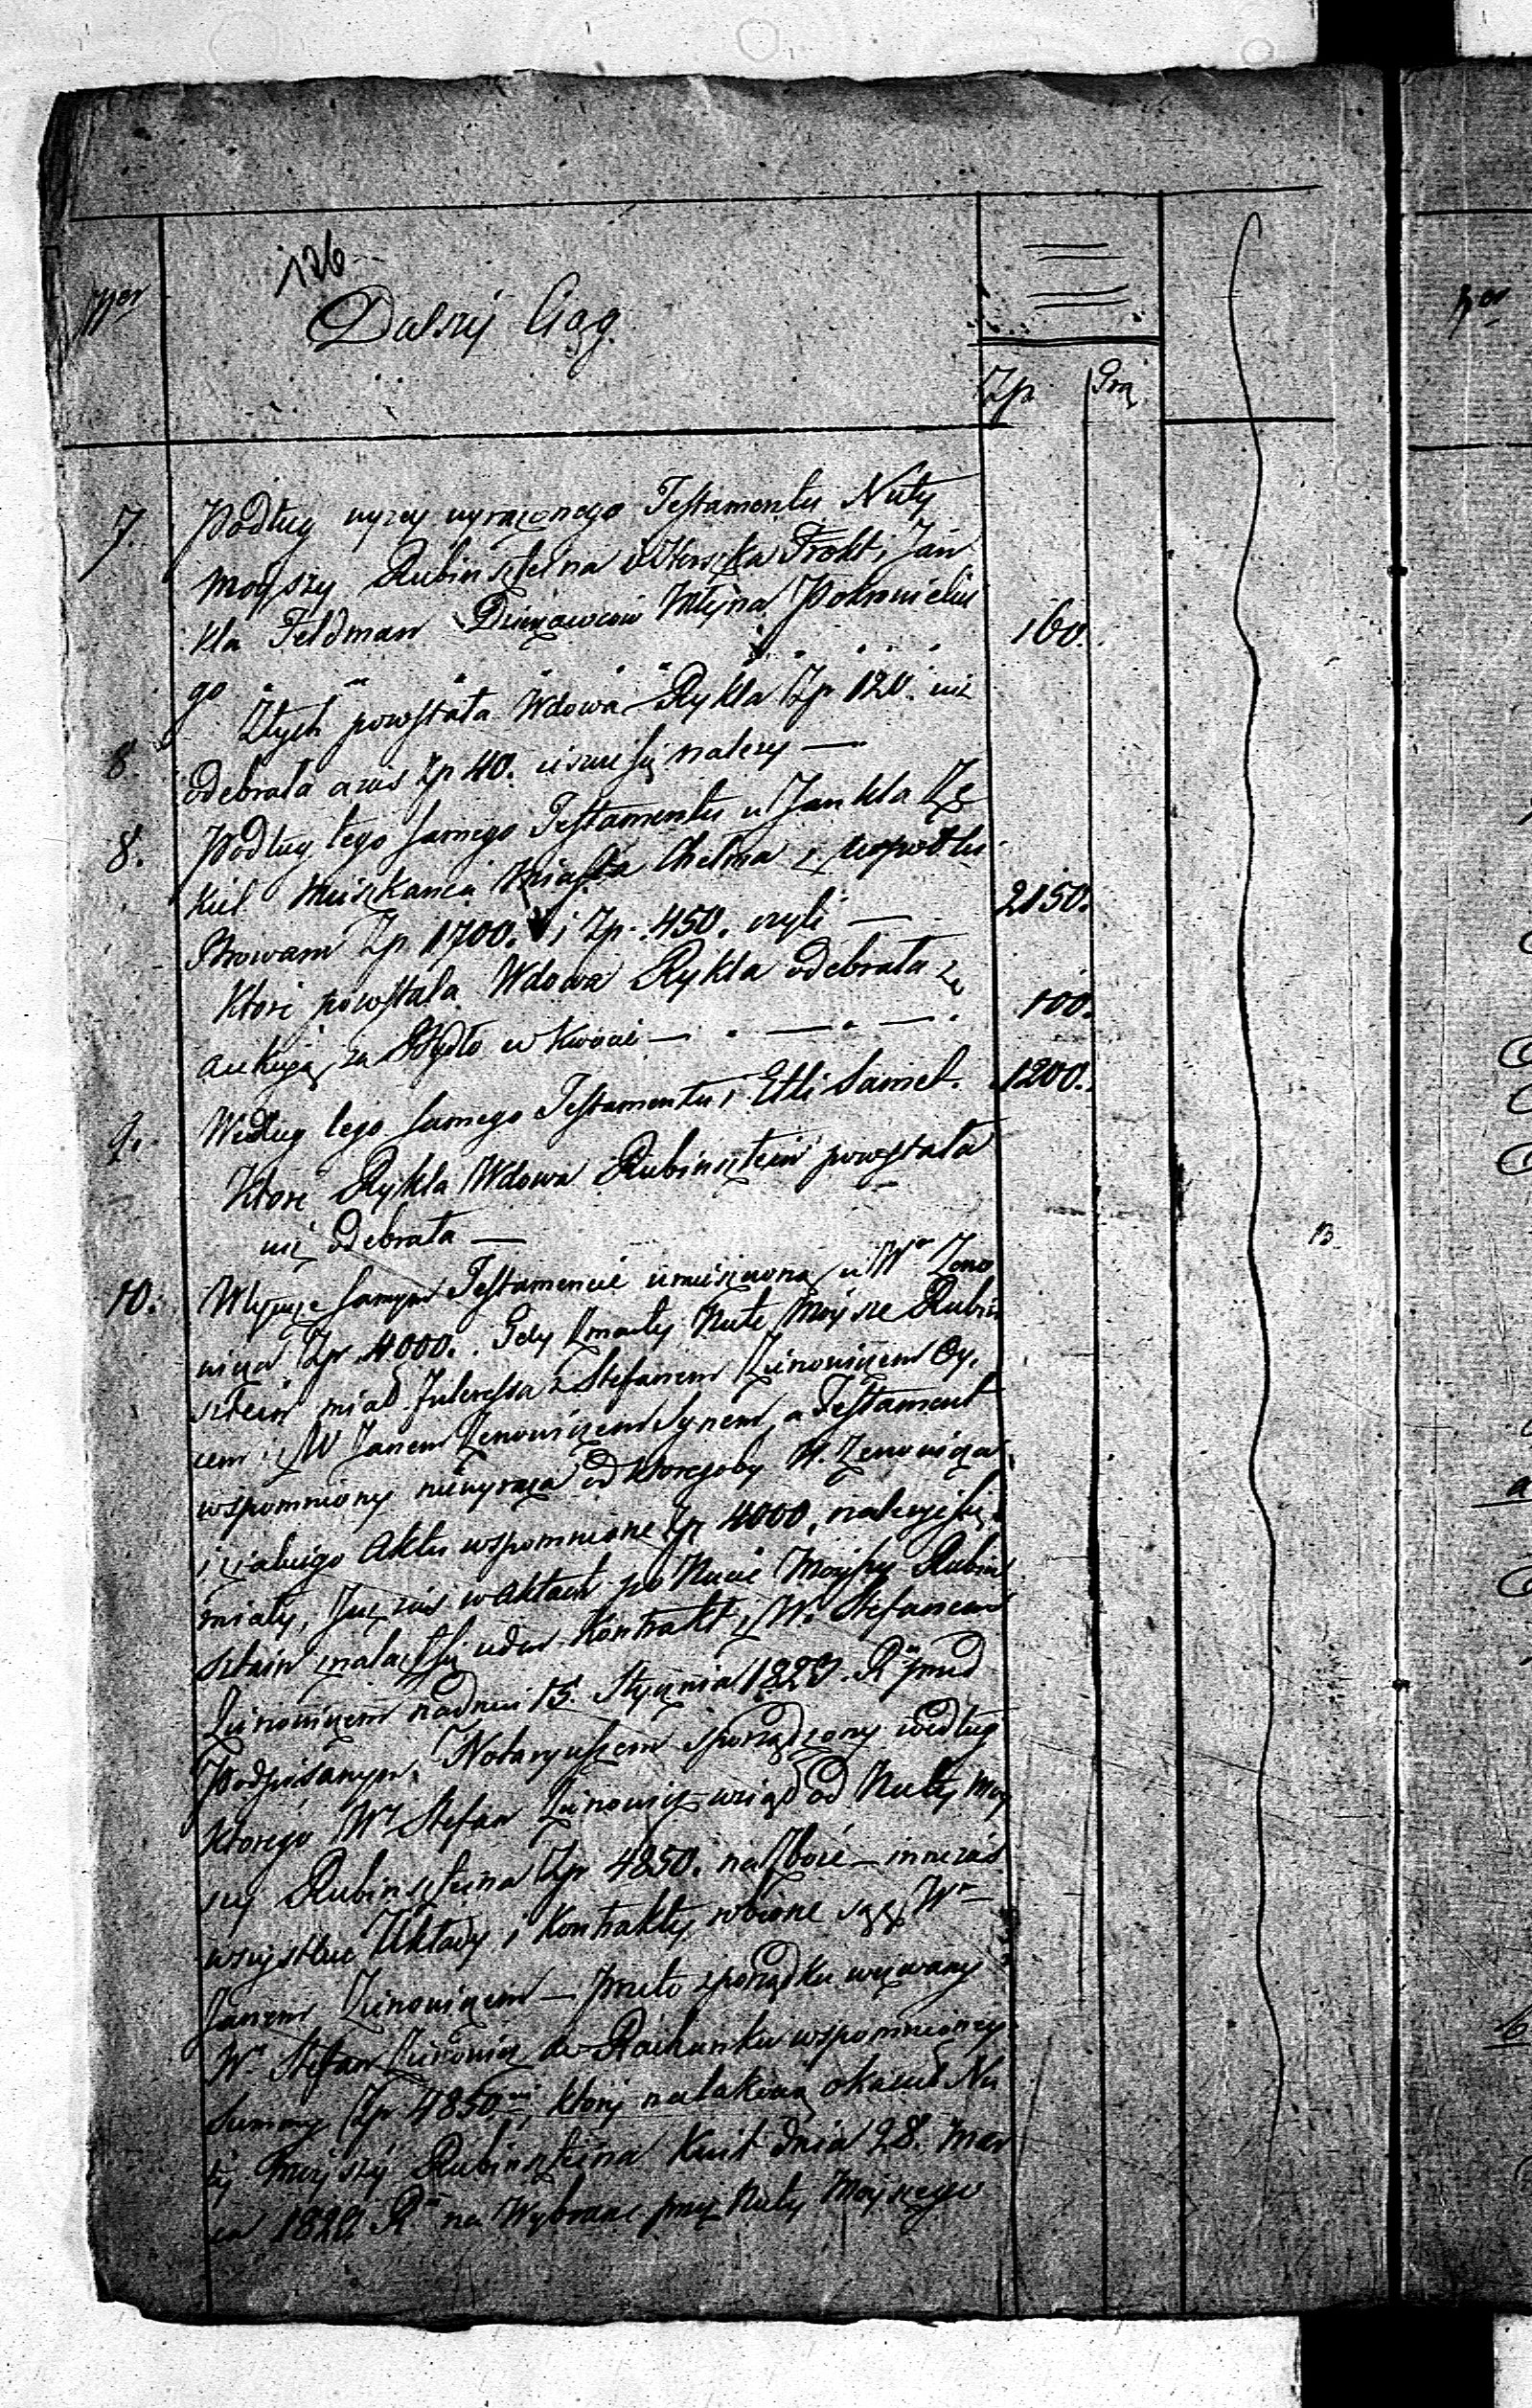 126
Nor
Dalszÿ Ciąg.
Zp. Grą
7. Podług wyzey wyrażonego Testamentu Nuty
Moÿszy Rubinszteina Herszka Trokt i Jan
kla Feldman Dzierzawców Młyna Pokrowielkie
go 160.
Złtych powstała Wdowa Rykla Zp 120. nie
8. odebrała a zas Zp 40. ieszcze się nalezy —
8. Podług tego samego Testamentu u Jankla Ze
kiel Mieszkanca Miasta Chełma z
Browaru Zp 1700. i Zp. 450. czyli — 2150.
Ktore powstała Wdowa Rykla odebrała z
aukcyą za Bydło w kwocie — . — . — . 100.
9. Według tego samego Testamentu i Etli Samet. 1200.
Ktore Rykla Wdowa Rubinsztein powstała
nie odebrała —
10. W tymże samym Testamencie umieszczona u Wo Zeno
wicza Zp. 4000. Gdy Zmarły Nute Moÿsze Rubin
sztein miał Interessa z Stefanem Zienowiczem Oy,
cem i z W Janem Zenowiczem Synem, a Testament
wspomniony niewyraża od ktoregoby W. Zenowicza
i z iakiego Aktu wspomnione Zp 4000, należeć się
miały, Już zas w Aktach po Nucie Moÿszy Rubin
sztein znalazł się Kontrakt z Wm Stefanem
Zienowiczem na dniu 15. Stycznia 1820. Ru przed
Podpisanym Notaryuszem sporządzony według
ktorego Wy Stefan Zienowicz wziął od Nuty Moy
szy Rubinszteina Zp 4850. na Zboże — inne zaś
wszystkie Układy i Kontrakty robione są z Wm
Janem Zienowiczem — Przeto z porządku wezwany
Wy Stefan Zienowicz do Rachunku wspomnioney
Summy Zp 4850, który na takową okazał Nu
ty Moÿszy Rubinszteina Kwit dnia 28. Mar
ca 1820 Ru na Wybrane przez Nuty Moyszego